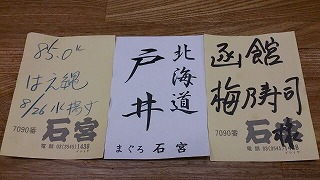 85.0K
はえ縄
8/26 水揚げ
7090番
石宮
電話 03(3545)1438
北海道
戸井
まぐろ 石宮
函館
梅乃寿司
7090番
石宮
電話 03(3545)1438